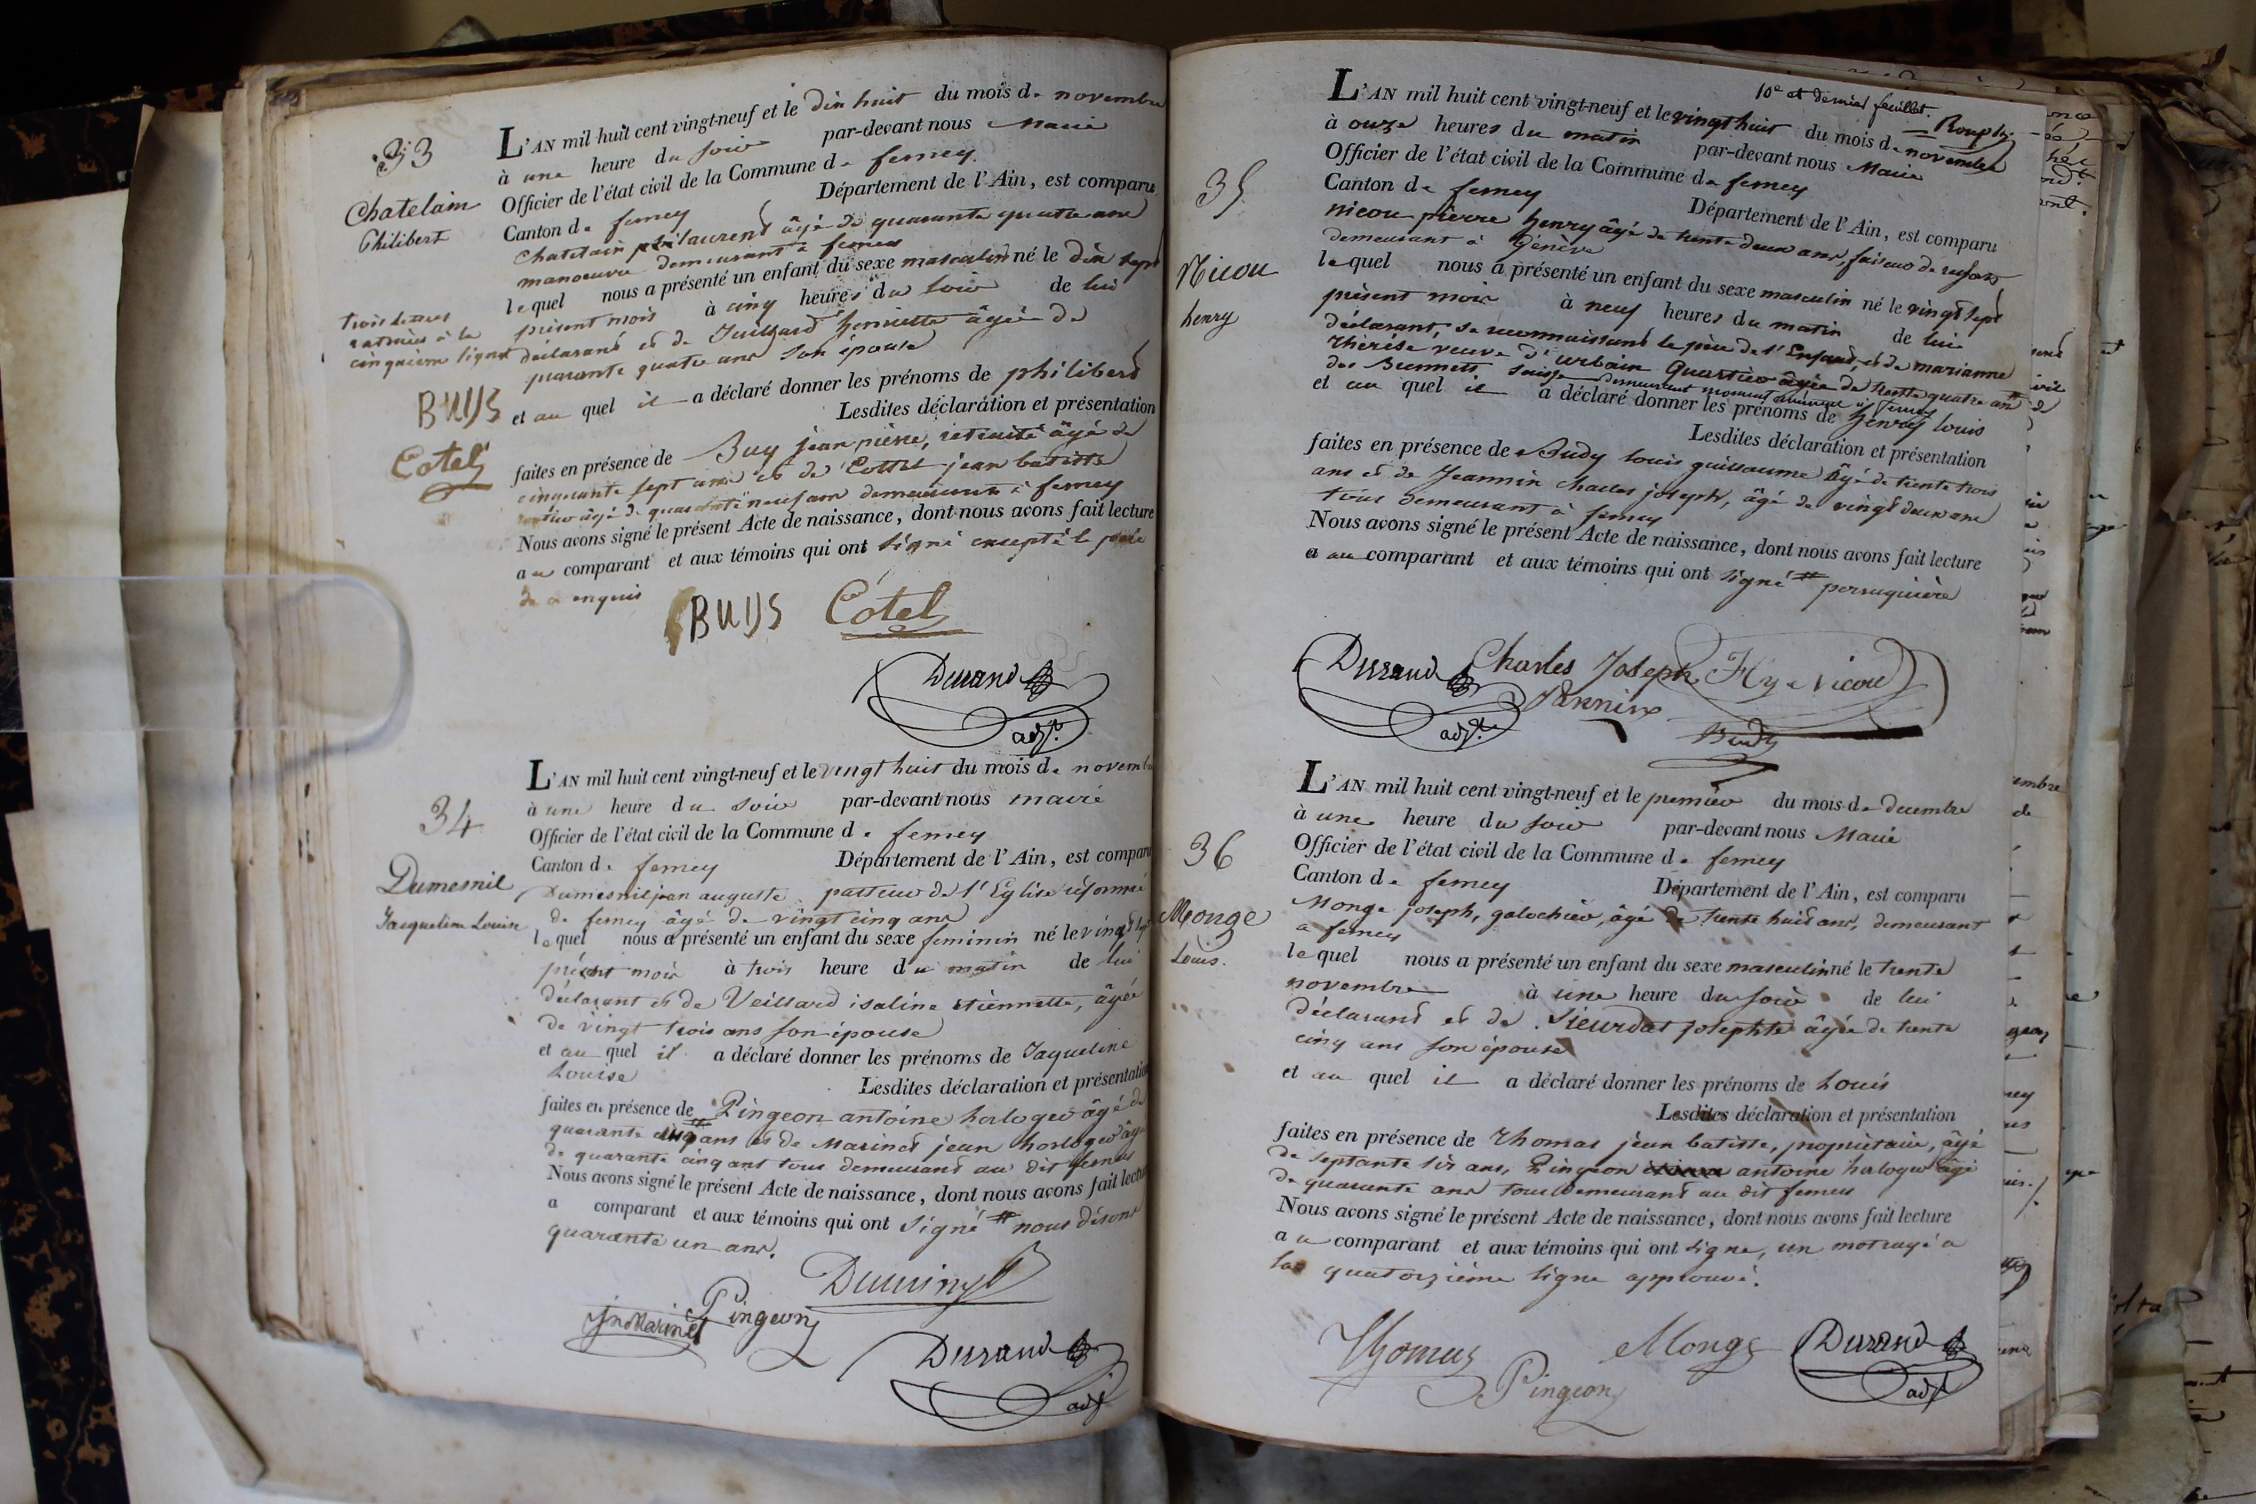 33
Chatelain
Philibert
L'AN mil huit cent vingt-neuf et le dix huit du mois de novembre
à une heure du soir par-devant nous Maire
Officier de l'état civil de la Commune de ferney.
Canton de ferney Département de l'Ain, est comparu
Chatelain laurent âgé de quarante quatre ans
manoeuvre demeurant à ferney
lequel nous a présenté un enfant du sexe masculin né le dix sept
présent mois à cinq heures du soir de lui
déclarant et de Juillard henriette âgée de
quarante quatre ans son épouse
et au quel il a déclaré donner les prénoms de philibert
Lesdites déclaration et présentation
faites en présence de Buy jean pierre, retraité âgé de
cinquante sept ans et de Cottel jean batiste
âgé de quarante neuf ans demeurants à ferney
Nous avons signé le présent Acte de naissance, dont nous avons fait lecture
au comparant et aux témoins qui ont signé excepté le père
de ce enquis
trois lettres
ratuées à la
cinquième ligne
BUIJS
Cotel
BUIJS Cotel
Durand
adjt.
34
Dumesnil
Jacqueline Louise
L'AN mil huit cent vingt-neuf et le vingt huit du mois de novembre
à une heure du soir par-devant nous maire
Officier de l'état civil de la Commune de ferney
Canton de ferney Département de l'Ain, est comparu
Dumesnil jean auguste pasteur de l'Eglise réformée
de ferney âgé de vingt cinq ans
lequel nous a présenté un enfant du sexe feminin né le vingt sept
présent mois à trois heure du matin de lui
déclarant et de Veillard isaline etiennette, âgée
de vingt trois ans son épouse
et au quel il a déclaré donner les prénoms de Jaqueline
Louise
Lesdites déclaration et présentation
faites en présence de Pingeon antoine horloger âgé de
quarante cinq ans et de Marinet jean horloger âgé
de quarante cinq ans tous demeurant au dit ferney
Nous avons signé le présent Acte de naissance, dont nous avons fait lecture
a comparant et aux témoins qui ont signé # nous disons
quarante un ans.
Dumesnil
Jn Marinet Pingeon
Durand
adjt
10e et dernier feuillet.
35
Nicou
henry
L'AN mil huit cent vingt-neuf et le vingt huit du mois de novembre
à onze heures du matin par-devant nous Maire
Officier de l'état civil de la Commune de ferney
Canton de ferney Département de l'Ain, est comparu
Nicou pierre henry âgé de trente deux ans, faiseur de ressors
demeurant à Genève
lequel nous a présenté un enfant du sexe masculin né le vingt sept
présent mois à neuf heures du matin de lui
déclarant, se reconnaissant le père de l'Enfant, et de marianne
thérèse veuve d'urbain quartier âgée de trente quatre ans #
des Brennets suisse demeurant momentanément à ferney
et au quel il a déclaré donner les prénoms de henry louis
Lesdites déclaration et présentation
faites en présence de Budy louis guillaume âgé de trente trois
ans et de Jeannin Charles joseph, âgé de vingt deux ans
tous demeurant à ferney
Nous avons signé le présent Acte de naissance, dont nous avons fait lecture
a au comparant et aux témoins qui ont signé # perruquière
Durand Charles Joseph Hy Nicou
Jannin
adjt. Budy
36
Monge
Louis.
L'AN mil huit cent vingt-neuf et le premier du mois de decembre
à une heure du soir par-devant nous Maire
Officier de l'état civil de la Commune de ferney
Canton de ferney Département de l'Ain, est comparu
Monge joseph, galochier, âgé de trente huit ans, demeurant
a ferney
lequel nous a présenté un enfant du sexe masculin né le trente
novembre à une heure du soir de lui
déclarant et de Sieurdat josephte âgée de trente
cinq ans son épouse
et au quel il a déclaré donner les prénoms de Louis
Lesdites déclaration et présentation
faites en présence de Thomas jean batiste, propriétaire, âgé
de septante six ans, Pingeon antoine horloger âgé
de quarante ans tous demeurant au dit ferney
Nous avons signé le présent Acte de naissance, dont nous avons fait lecture
au comparant et aux témoins qui ont signé, un mot rayé a
la quatorzième ligne approuvé.
Thomas Monge Durand
Pingeon adjt